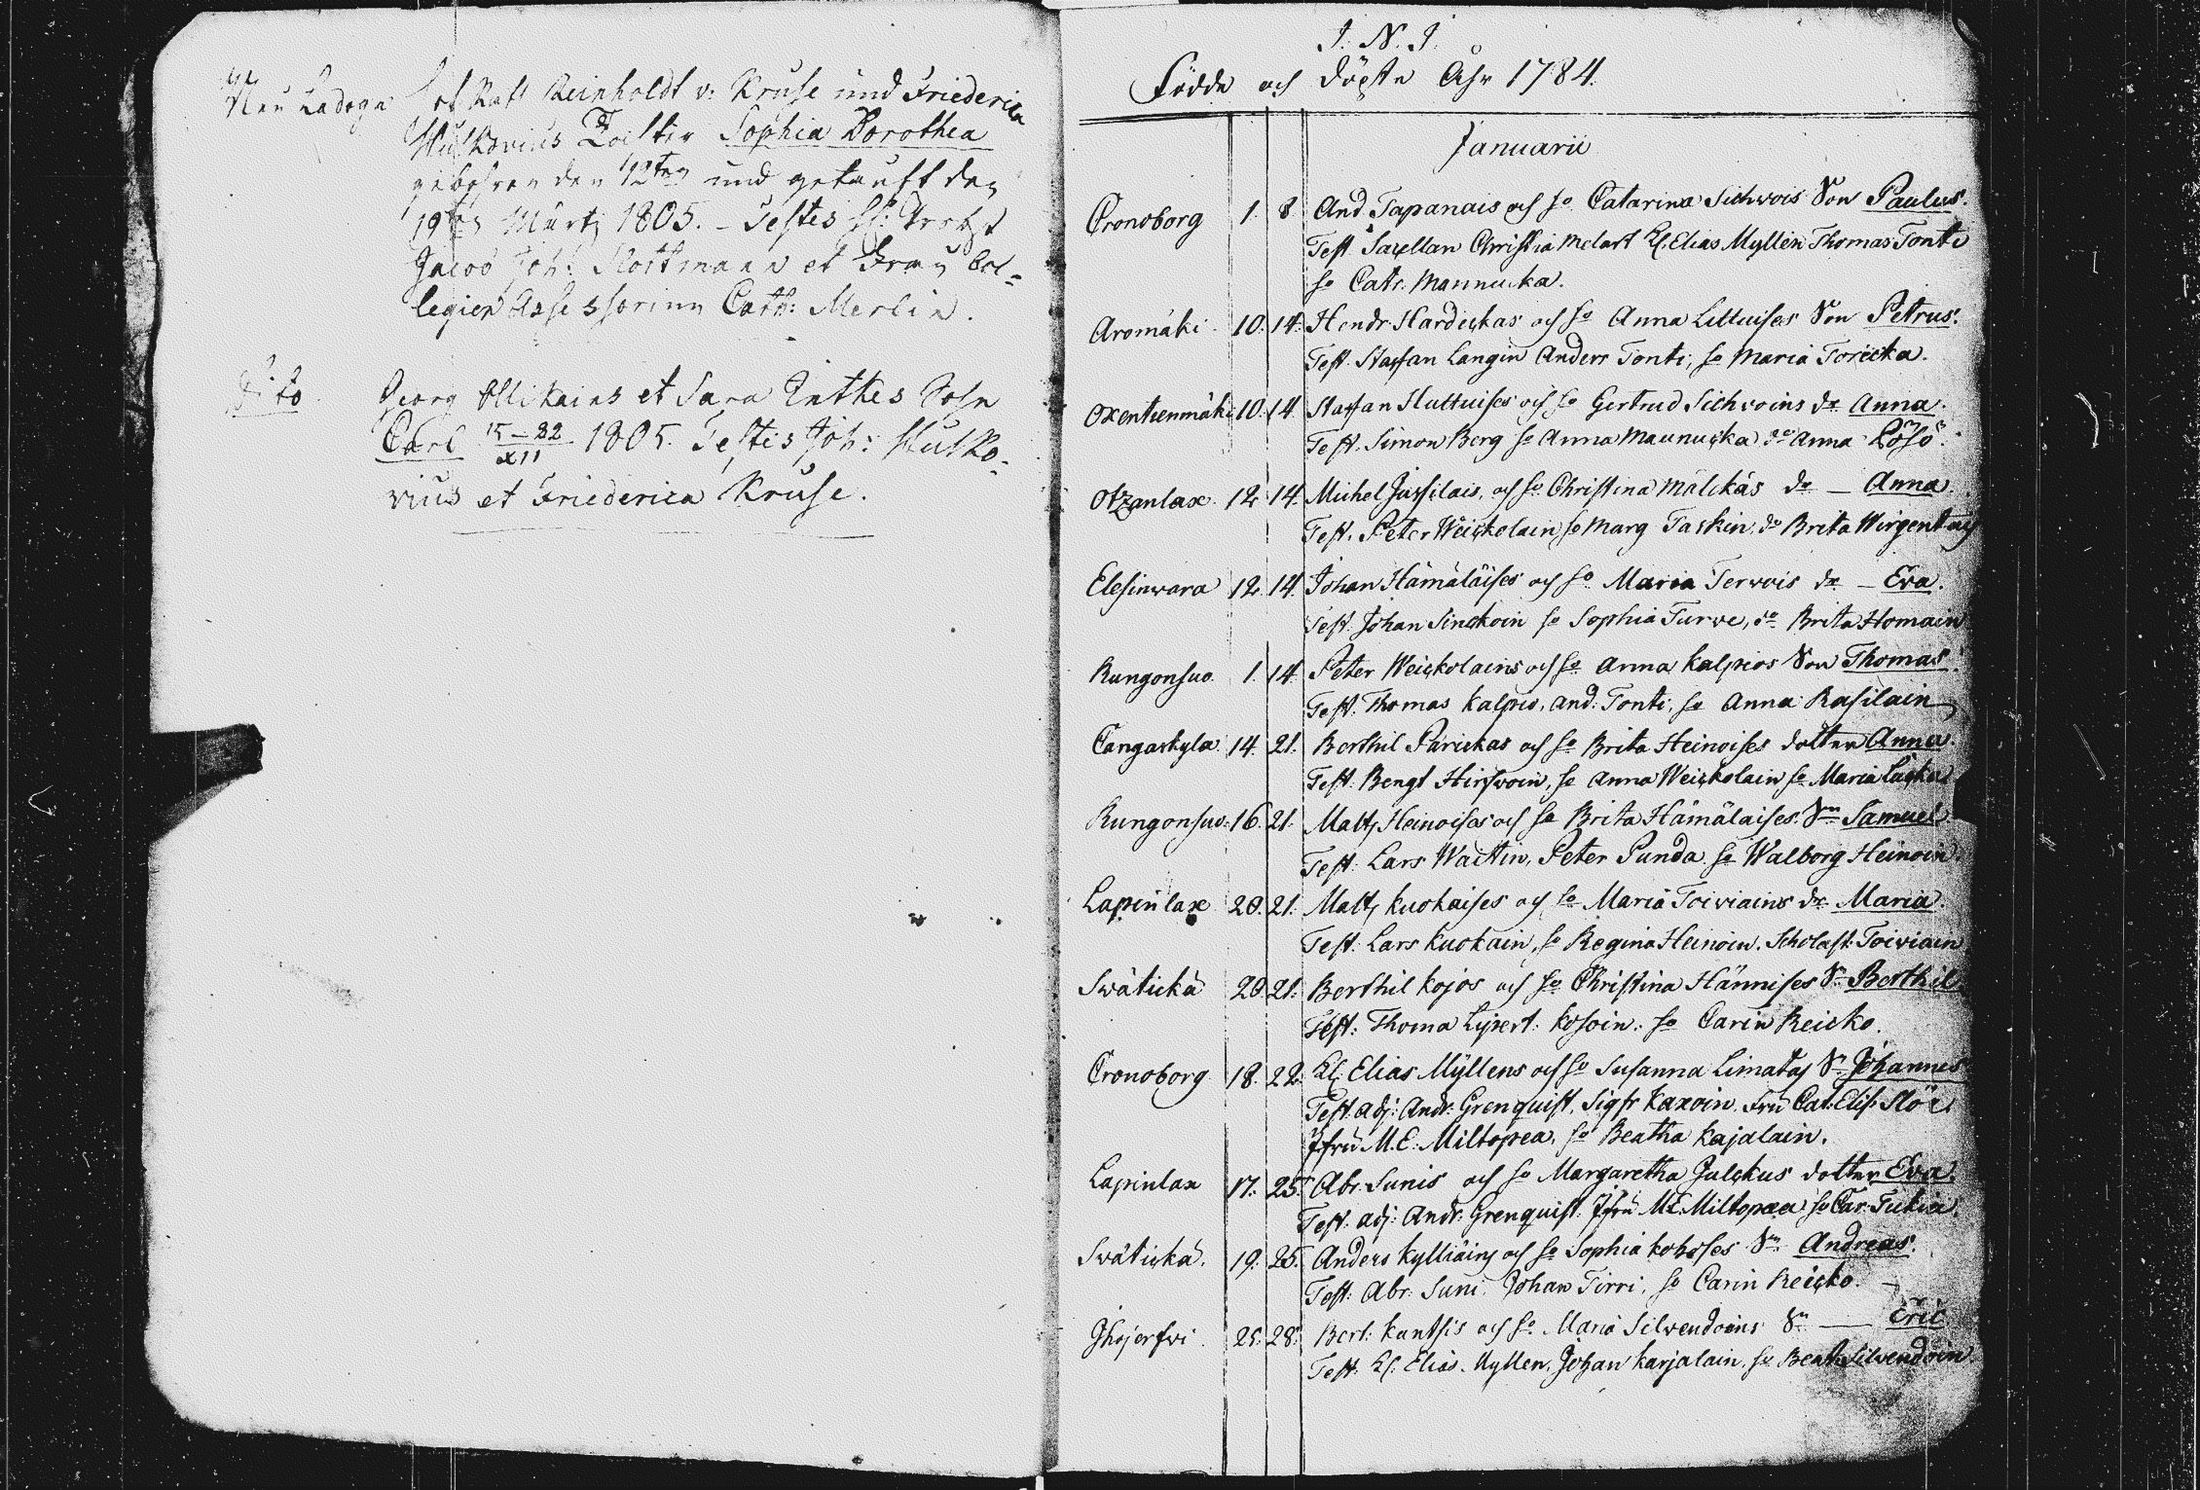 Neu Ladoga Hof Raht Reinholdt v: Kruse und Friederica
Huskovius Tochter Sophia Dorothea
gebohren den 12ten und getauft den
19ten Martz 1805. – Testes H: Probst
Jacob Joh: et Frau Col-
legien Assessorinn Cath: Merlin.
Dito Georg Ollikains et Sara Sohn
Carl 15–22/XII 1805. Testis Joh: Husko-
vius et Friederica Kruse.
J. N. J.
Födde och döpte Åhr 1784.
Januarii
Cronoborg 1. 8. And Tapanais och ho Catarina Sichvois Son Paulus.
Test Sacellan Christia Melart Kl. Elias Myllen Thomas Tonti
ho Catr. Mannucka.
Aromäki 10. 14. Hendr Hardickas och ho Anna Littuises Son Petrus.
Test. Staffan Langin Anders Tonti, ho Maria Toricka.
Oxentienmäki 10. 14. Staffan Huttuises och ho Gertrud Sichvoins dr Anna.
Test. Simon Borg ho Anna Maunucka do Anna Lösö.
Otzanlax 12. 14. Michel Jussilais, och ho Christina Mälckäs dr – Anna.
Test. Peter Weickolain, ho Marg Taskin, do Brita
Elesinwara 12. 14. Johan Hämäläises och ho Maria Terwois dr – Eva.
Test. Johan Sinckoin ho Sophia Turve, do Brita Homain
Kungonsuo 1. 14. Peter Weickolains och ho Anna Kalpios Son Thomas.
Test. Thomas Kalpio, And: Tonti, ho Anna Rasilain
Cangaskyla 14. 21. Berthil Parickas och ho Brita Heinoises dotter Anna.
Test. Bengt Hirfwoin, ho Anna Weickolain ho Maria
Kungonsuo 16. 21. Matts Heinoises och ho Brita Hämäläises Sn Samuel.
Test: Lars Peter Punda ho Walborg Heinoin.
Lapinlax 20. 21. Matts Kuokaises och ho Maria Toiviains dr Maria.
Test: Lars Kuokain, ho Regina Heinoin, Scholast: Toiviain
Swätickä 20. 21. Berthil Kojos och ho Christina Hännises Sn Berthil.
Test: Thoma Lypert: Kosoin: ho Carin Reicko.
Cronoborg 18. 22. Kl: Elias Myllens och ho Susanna Limatas Sn Johannes
Test. Adj: Andr: Grenquist, Sigfr Kaxoin, Fru Cat: Elis:
Jfru M.E: Miltopea, ho Beatha Kajalain.
Lapinlax 17. 25. Abr. Sunis och ho Margaretha Julckus dotter Eva.
Test: Adj: Andr: Grenquist. Jfru M.E: Miltopæa ho Car: Tukia.
Swätickä. 19. 25. Anders Kylliäins och ho Sophia Kohoses Sn Andreas.
Test: Abr: Suni, Johan Tirri, ho Carin Reicko. –
Ihojerfwi 25. 28. Bert: Kuntsis och ho Maria Silvendoins Sn — Eric
Test: Kl: Elias Myllen, Johan Karjalain, ho Beatha Silvendoin